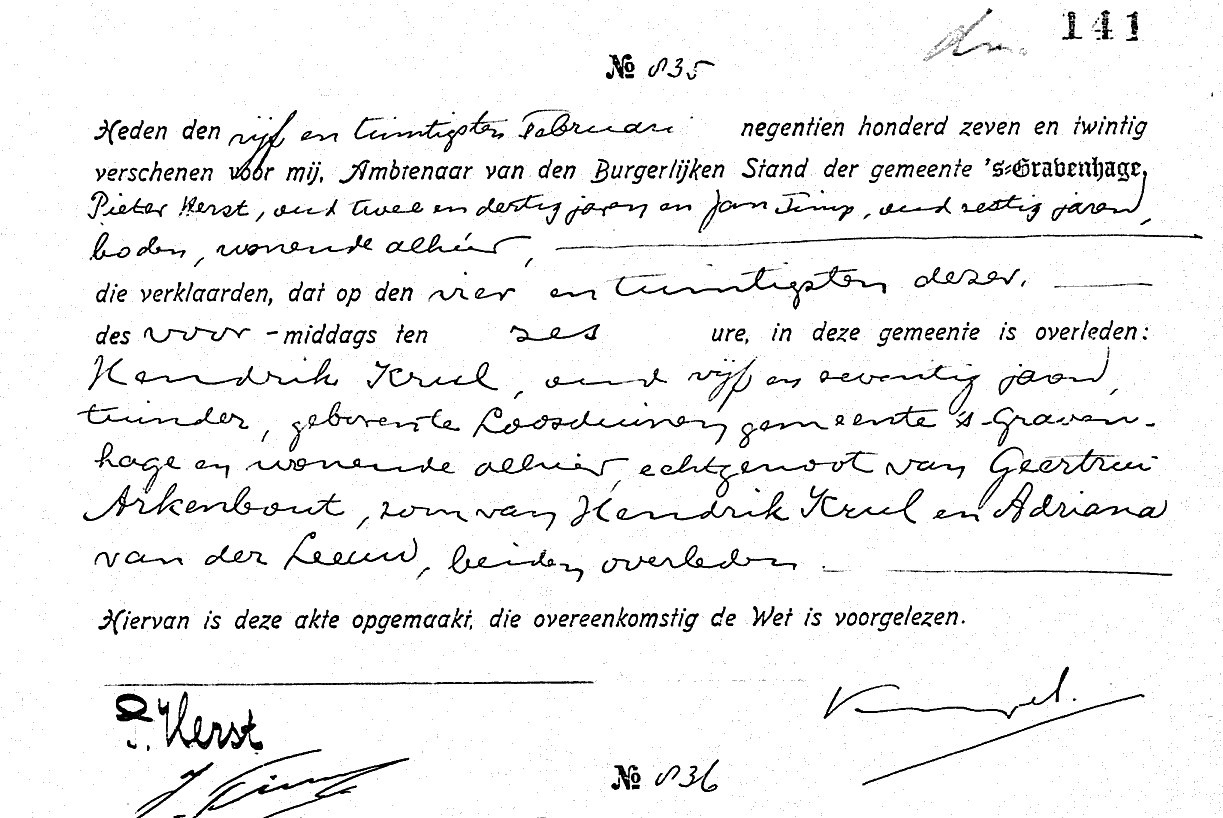 141
№ 835
Heden den vijf en twintigsten Februari negentien honderd zeven en twintig
verschenen voor mij, Ambtenaar van den Burgerlijken Stand der gemeente 's-Gravenhage,
Pieter Herst, oud twee en dertig jaren en Jan Timp, oud zestig jaren,
boden, wonende alhier,
die verklaarden, dat op den vier en twintigsten dezer,
des voor-middags ten zes ure, in deze gemeente is overleden:
Hendrik Krul, oud vijf en zeventig jaren,
tuinder, geboren te Loosduinen gemeente 's-Graven-
hage en wonende alhier, echtgenoot van Geertrui
Arkenbout, zoon van Hendrik Krul en Adriana
van der Leeuw, beiden overleden.
Hiervan is deze akte opgemaakt, die overeenkomstig de Wet is voorgelezen.
P. Herst
№ 836